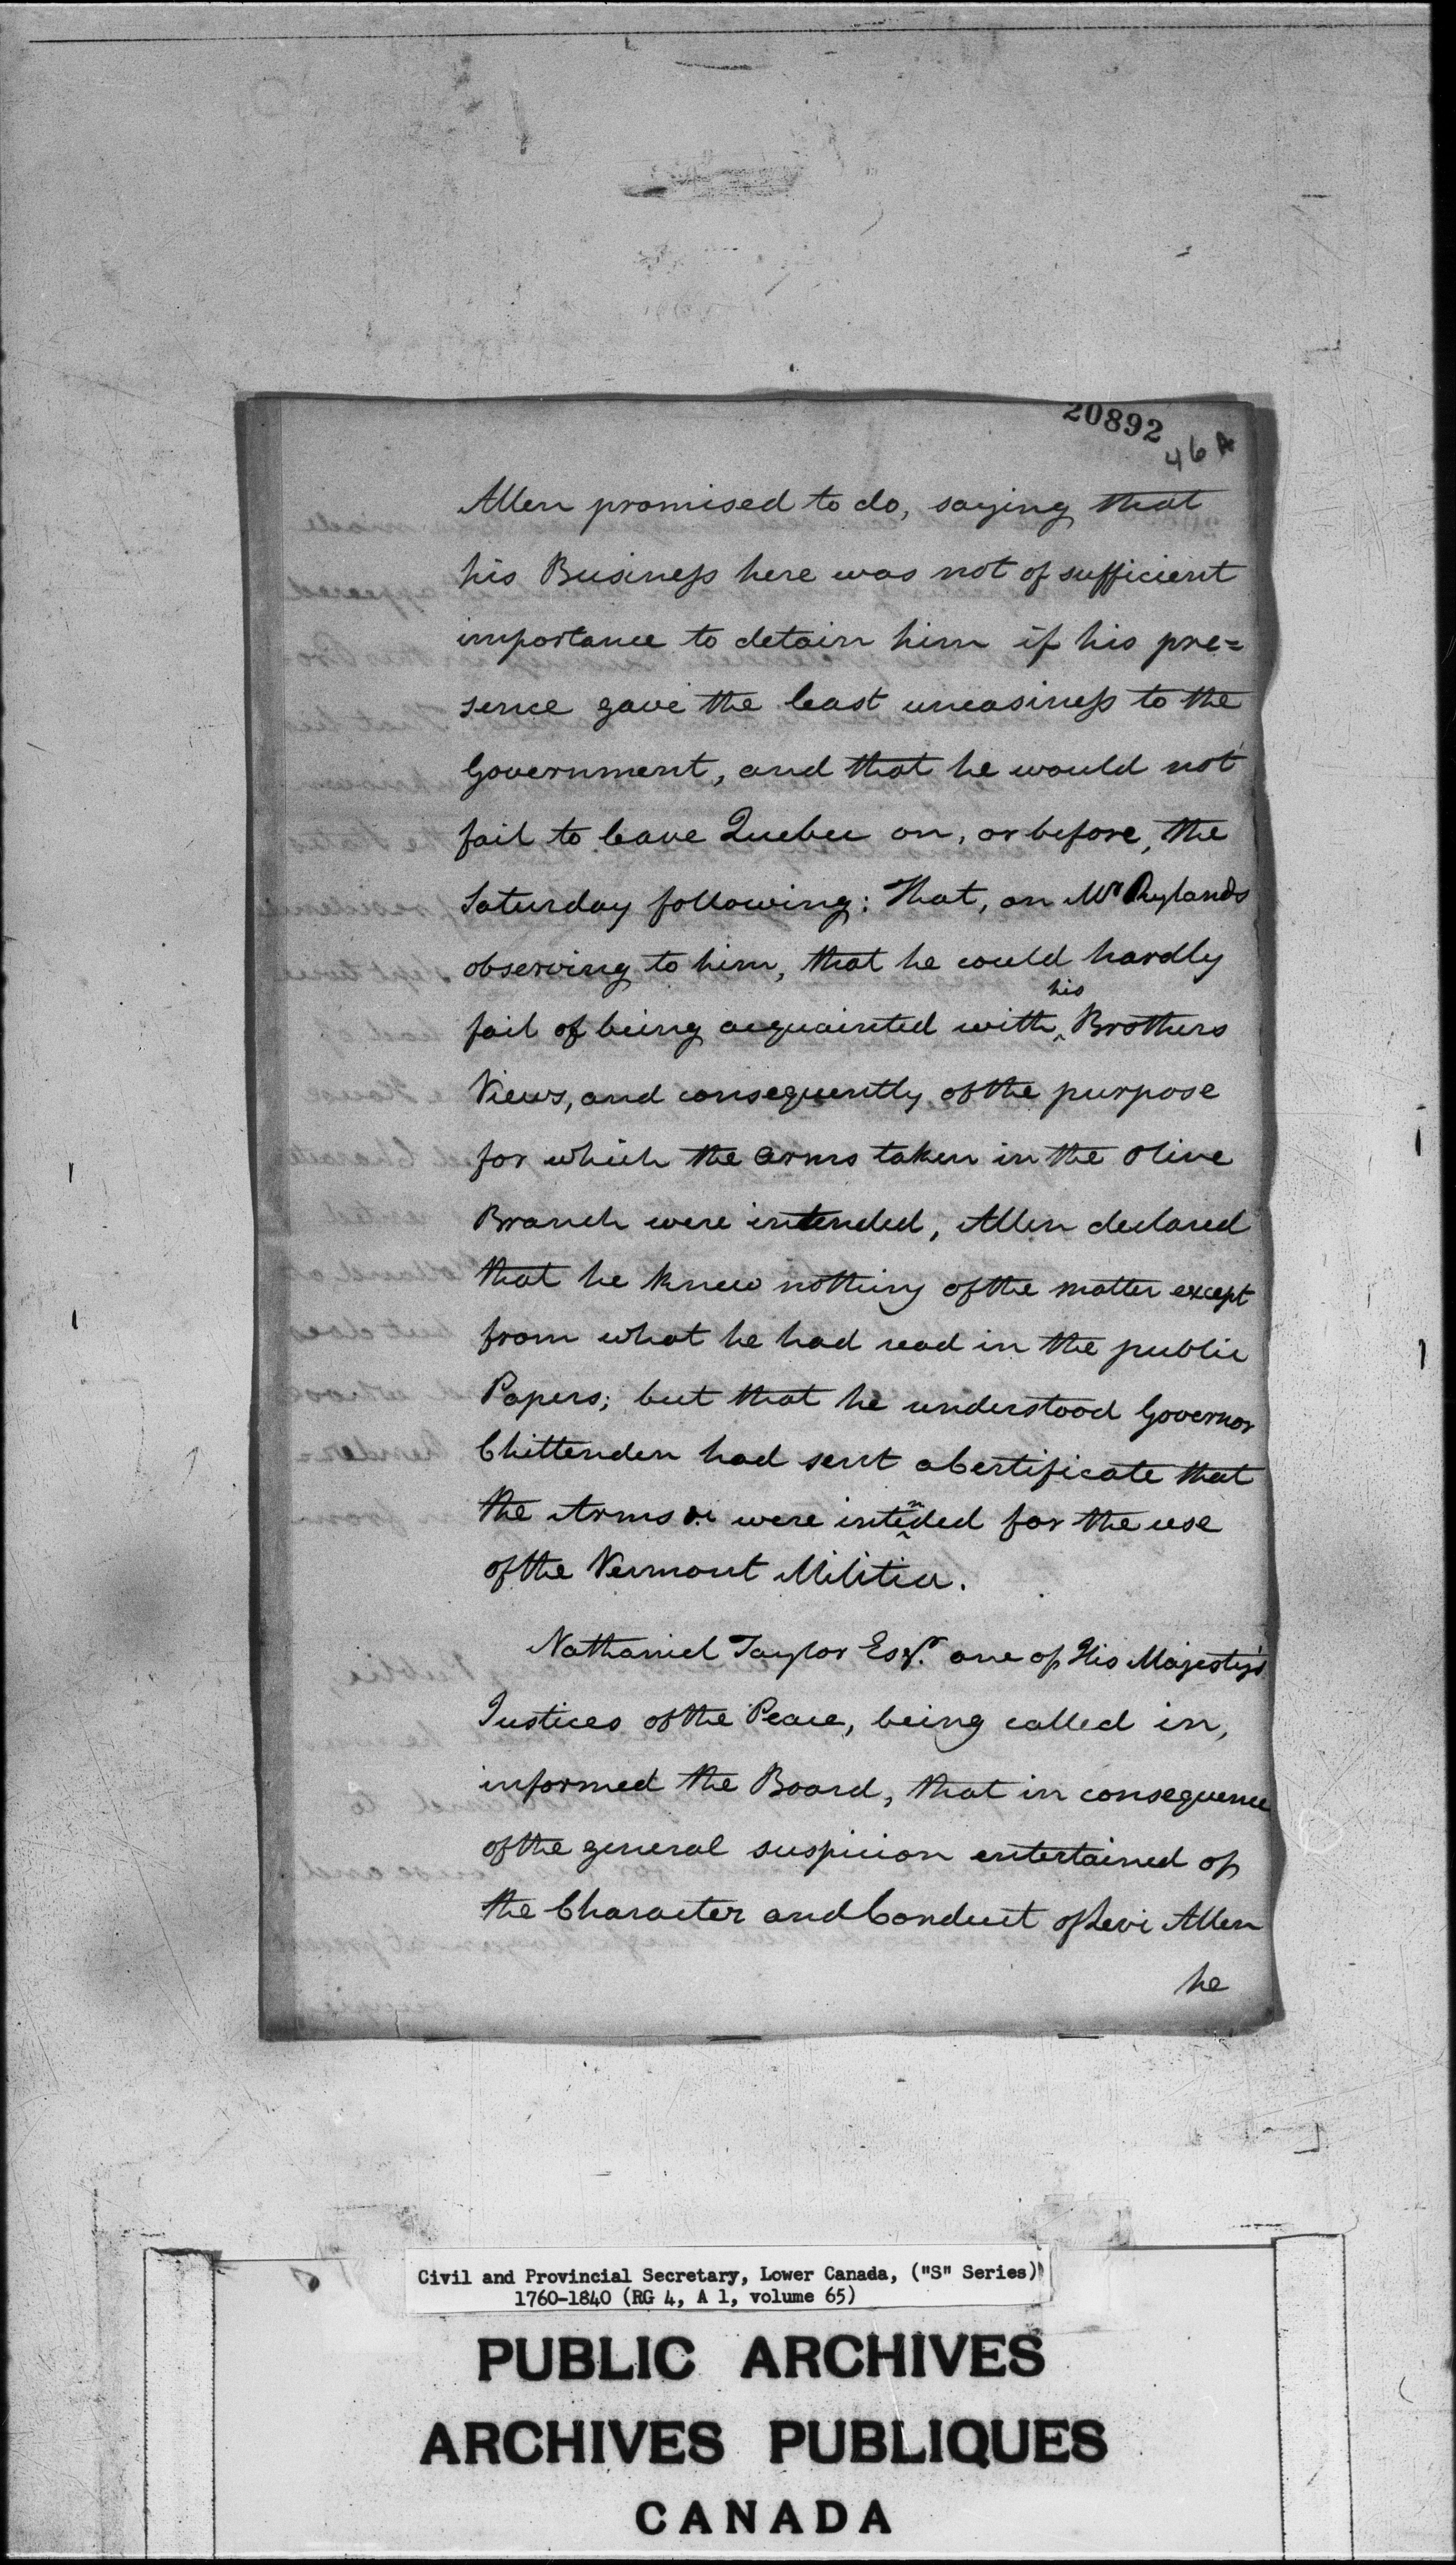 20892
46A
Allen promised to do, saying that
his Business here was not of sufficient
importance to detain him if his pre=
sence gave the least uneasiness to the
Government, and that he would not
fail to leave Quebec on, or before, the
Saturday following: That, on Mr Rylands
observing to him, that he could hardly
fail of being acquainted with his Brothers
Views, and consequently of the purpose
for which the arms taken in the Olive
Branch were intended, Allen declared
that he knew nothing of the matter except
from what he had read in the public
Papers; but that he understood Governor
Chittenden had sent a Certificate that
the Arms &c were intended for the use
of the Vermont Militia.
Nathaniel Taylor Esqr. one of His Majesty's
Justices of the Peace, being called in,
informed the Board, that in consequence
of the general suspicion entertained of
the Character and Conduct of Levi Allen
he
Civil and Provincial Secretary, Lower Canada, ("S" Series)
1760-1840 (RG 4, A 1, volume 65)
PUBLIC ARCHIVES
ARCHIVES PUBLIQUES
CANADA